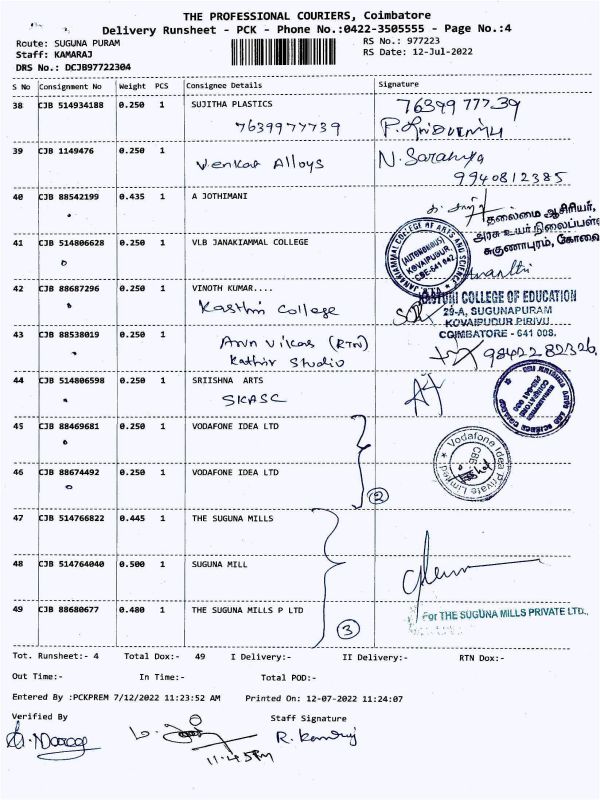 THE PROFESSIONAL COURIERS, Coimbatore
Delivery Runsheet - PCK - Phone No.:0422-3505555 - Page No.:4
Route: SUGUNA PURAM RS No.: 977223
Staff: KAMARAJ RS Date: 12-Jul-2022
DRS No.: DCJB97722304
S No Consignment No Weight PCS Consignee Details Signature
38 CJB 514934188 0.250 1 SUJITHA PLASTICS 76399 77739
7639977739
39 CJB 1149476 0.250 1 Venkat Alloys N. Saranya
9940812385
40 CJB 88542199 0.435 1 A JOTHIMANI
தலைமை ஆசிரியர்,
அரசு உயர்நிலைப்பள்
சுகுணாபுரம், கோவை
41 CJB 514806628 0.250 1 VLB JANAKIAMMAL COLLEGE
JANAKIAMMAL COLLEGE OF ARTS AND SCIENCE
(AUTONOMOUS)
KOVAIPUDUR
CBE-641 042
42 CJB 88687296 0.250 1 VINOTH KUMAR....
Kasthri College
KASTURI COLLEGE OF EDUCATION
29-A, SUGUNAPURAM
KOVAIPUDUR PIRIVU
COIMBATORE - 641 008.
43 CJB 88538019 0.250 1 Arun Vikas (RTN)
Kathir Studio
98422 82326
44 CJB 514806598 0.250 1 SRIISHNA ARTS
SKASC
45 CJB 88469681 0.250 1 VODAFONE IDEA LTD
Vodafone Idea Private Limited
CBE
46 CJB 88674492 0.250 1 VODAFONE IDEA LTD
2
47 CJB 514766822 0.445 1 THE SUGUNA MILLS
48 CJB 514764040 0.500 1 SUGUNA MILL
49 CJB 88680677 0.480 1 THE SUGUNA MILLS P LTD
For THE SUGUNA MILLS PRIVATE LTD.,
3
Tot. Runsheet:- 4 Total Dox:- 49 I Delivery:- II Delivery:- RTN Dox:-
Out Time:- In Time:- Total POD:-
Entered By :PCKPREM 7/12/2022 11:23:52 AM Printed On: 12-07-2022 11:24:07
Verified By Staff Signature
R. Kamraj
11.45 PM